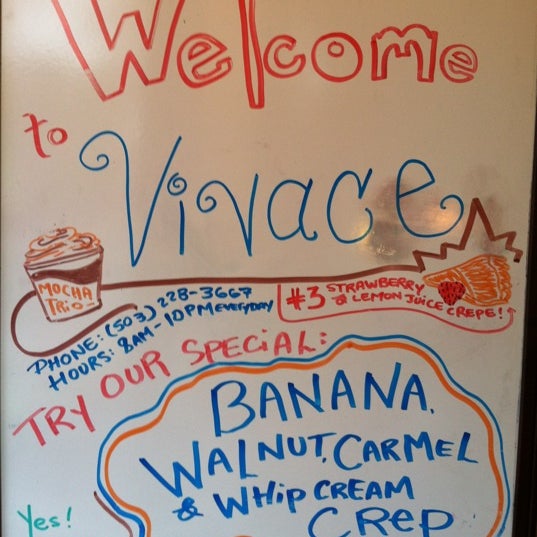 Welcome
to
Vivace
MOCHA
TRIO
PHONE: (503) 228-3667
HOURS: 8AM-10PM EVERYDAY
#3 STRAWBERRY
& LEMON JUICE CREPE!
TRY OUR SPECiAL:
BANANA,
WALNUT, CARMEL
& WHip CREAM
CRep
Yes!